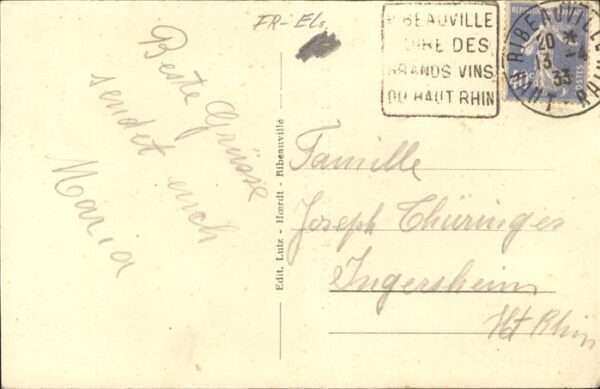 FR-Els.
RIBEAUVILLE
FOIRE DES
GRANDS VINS
DU HAUT RHIN
RIBEAUVILLE
20
13 -4
33
HT RHIN
Beste Grüsse
sendet euch
Maria
Edit. Lutz - Hœrdt - Ribeauvillé
Familie
Joseph Thüringer
Ingersheim
Ht Rhin